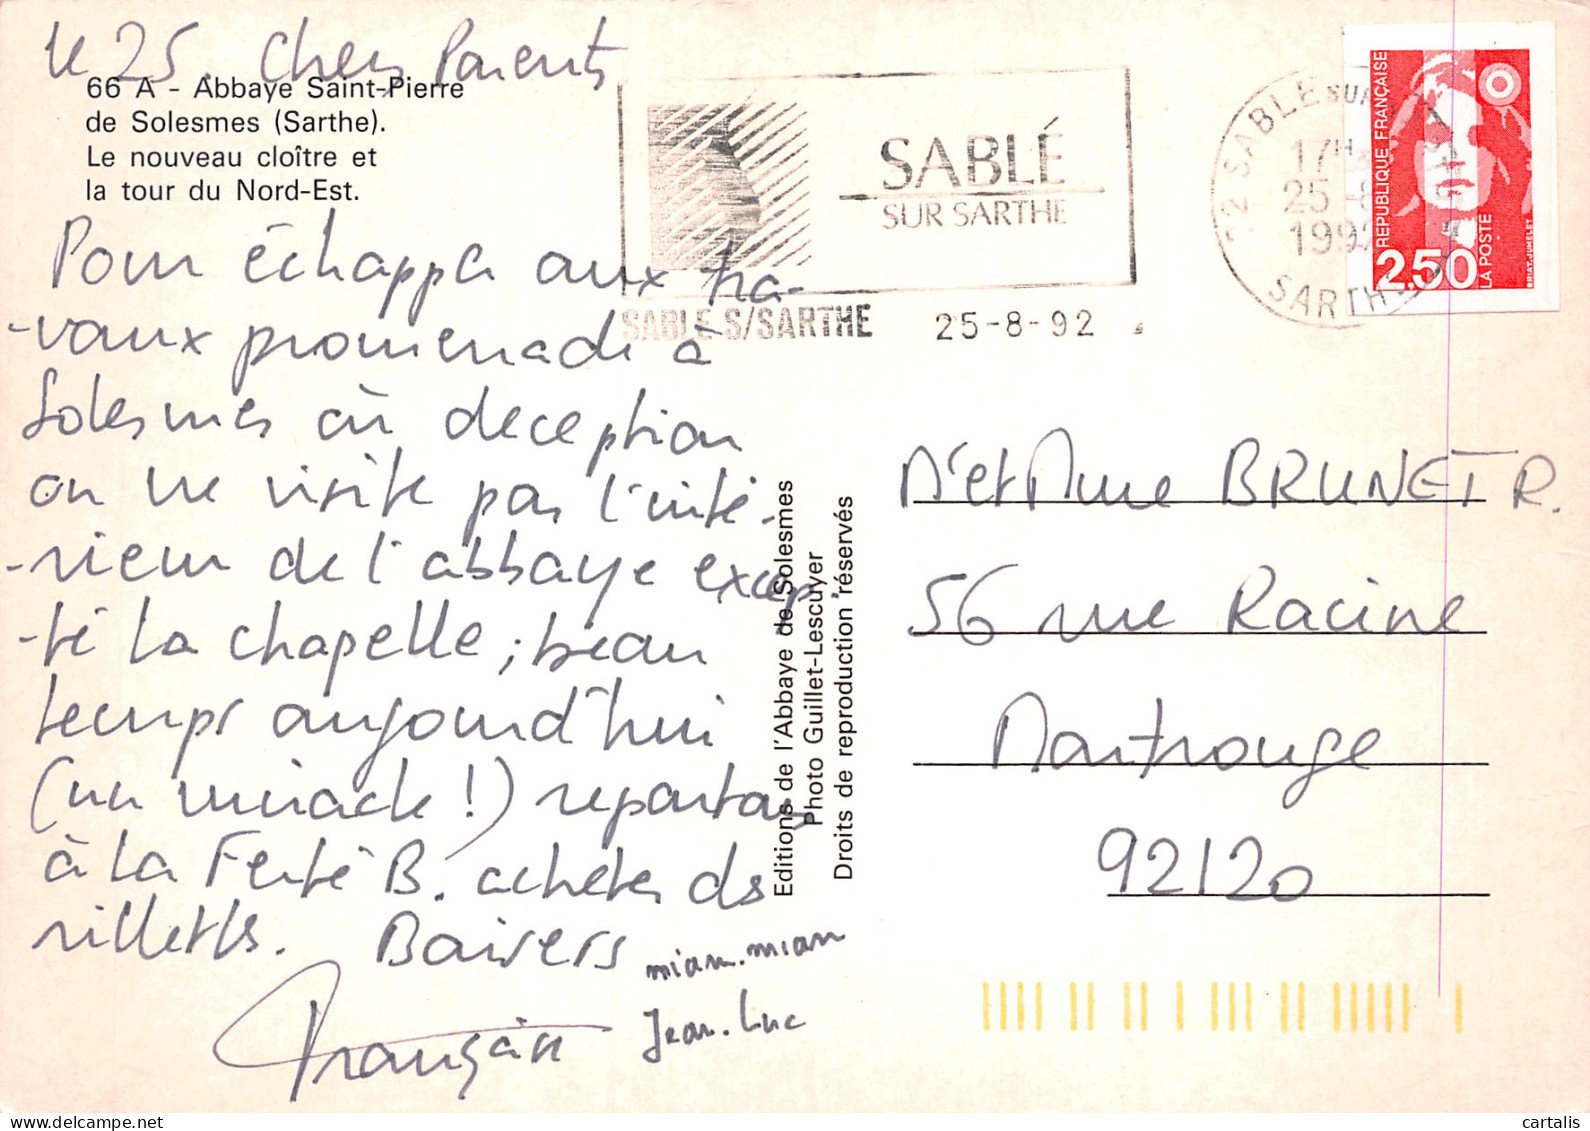 le 25. Chers Parents
66 A - Abbaye Saint-Pierre
de Solesmes (Sarthe).
Le nouveau cloître et
la tour du Nord-Est.
Pour échapper aux tra-
-vaux promenade à
Solesmes où deception
on ne visite pas l'inté-
-rieur de l'abbaye excep-
-té la chapelle ; beau
temps aujourd'hui
(un miracle !) repartons
à la Ferté B. acheter ds
rillettes. Baisers
miam.miam
Françoise
Jean.Luc
SABLÉ
SUR SARTHE
SABLE S/SARTHE 25-8-92
72 SABLE SUR
17H
25-8
1992
SARTHE
REPUBLIQUE FRANÇAISE
2.50
LA POSTE
BRIAT-JUMELET
Editions de l'Abbaye de Solesmes
Photo Guillet-Lescuyer
Droits de reproduction réservés
Mr et Mme BRUNET R.
56 rue Racine
Montrouge
92120
cartalis